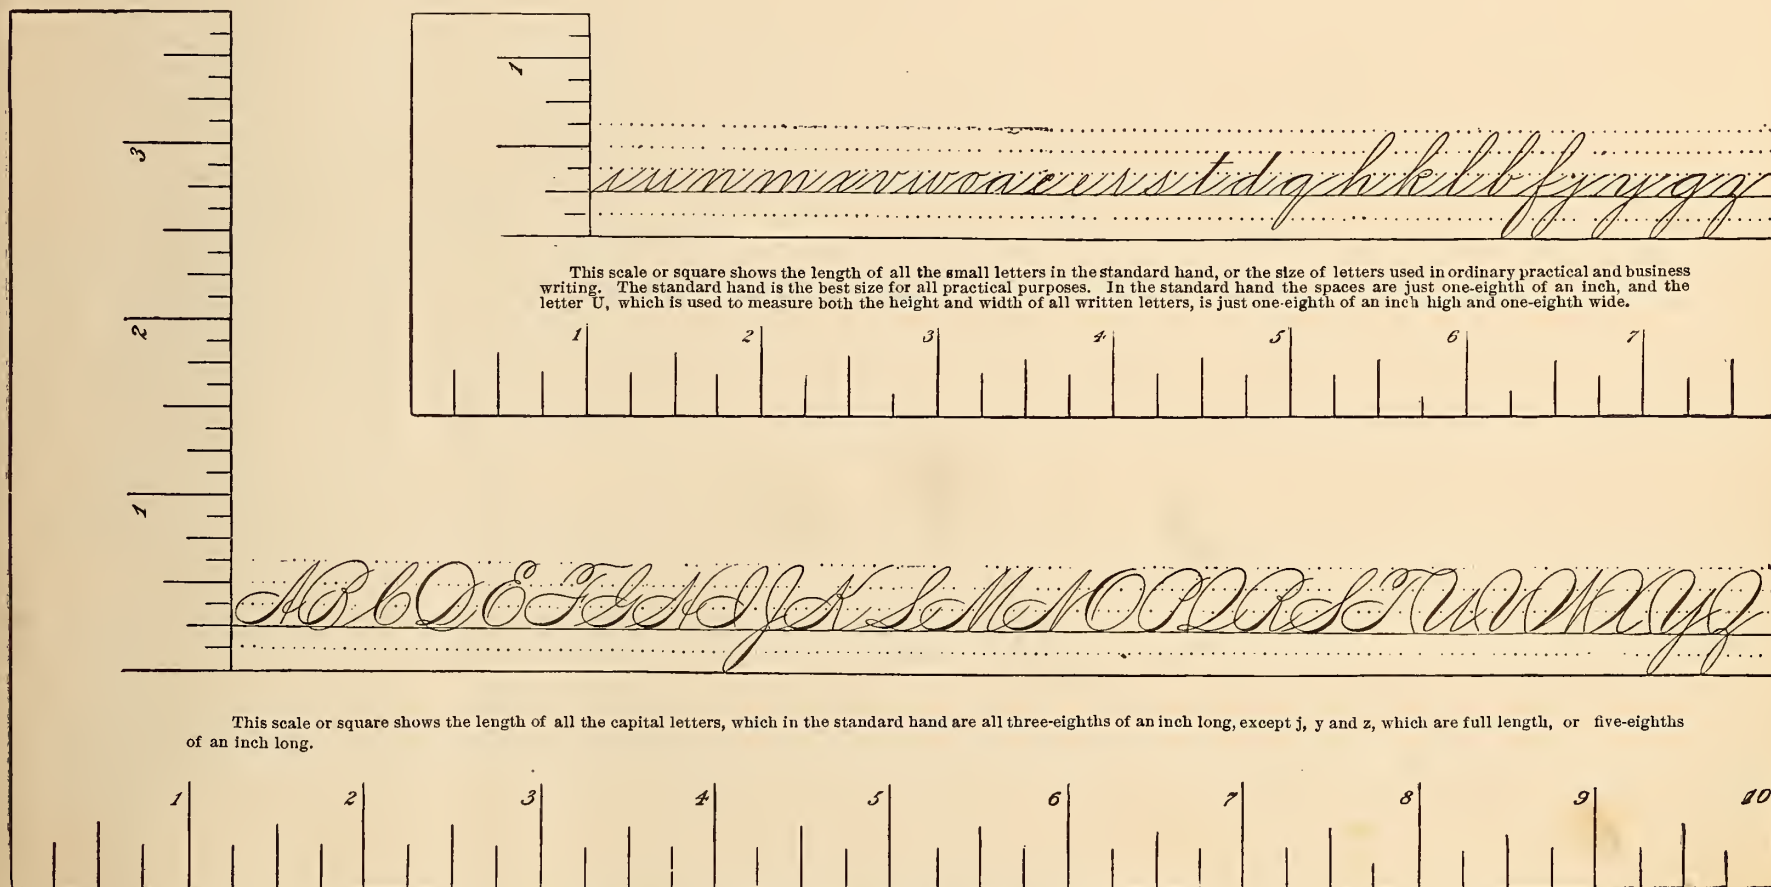 1
3
i u w n m x v w o a c e r s t d q h k l b f j y g z
This scale or square shows the length of all the small letters in the standard hand, or the size of letters used in ordinary practical and business
writing. The standard hand is the best size for all practical purposes. In the standard hand the spaces are just one-eighth of an inch, and the
letter U, which is used to measure both the height and width of all written letters, is just one-eighth of an inch high and one-eighth wide.
2
1 2 3 4 5 6 7
1
A B C D E F G H I J K L M N O P Q R S T U V W X Y Z
This scale or square shows the length of all the capital letters, which in the standard hand are all three-eighths of an inch long, except j, y and z, which are full length, or five-eighths
of an inch long.
1 2 3 4 5 6 7 8 9 10